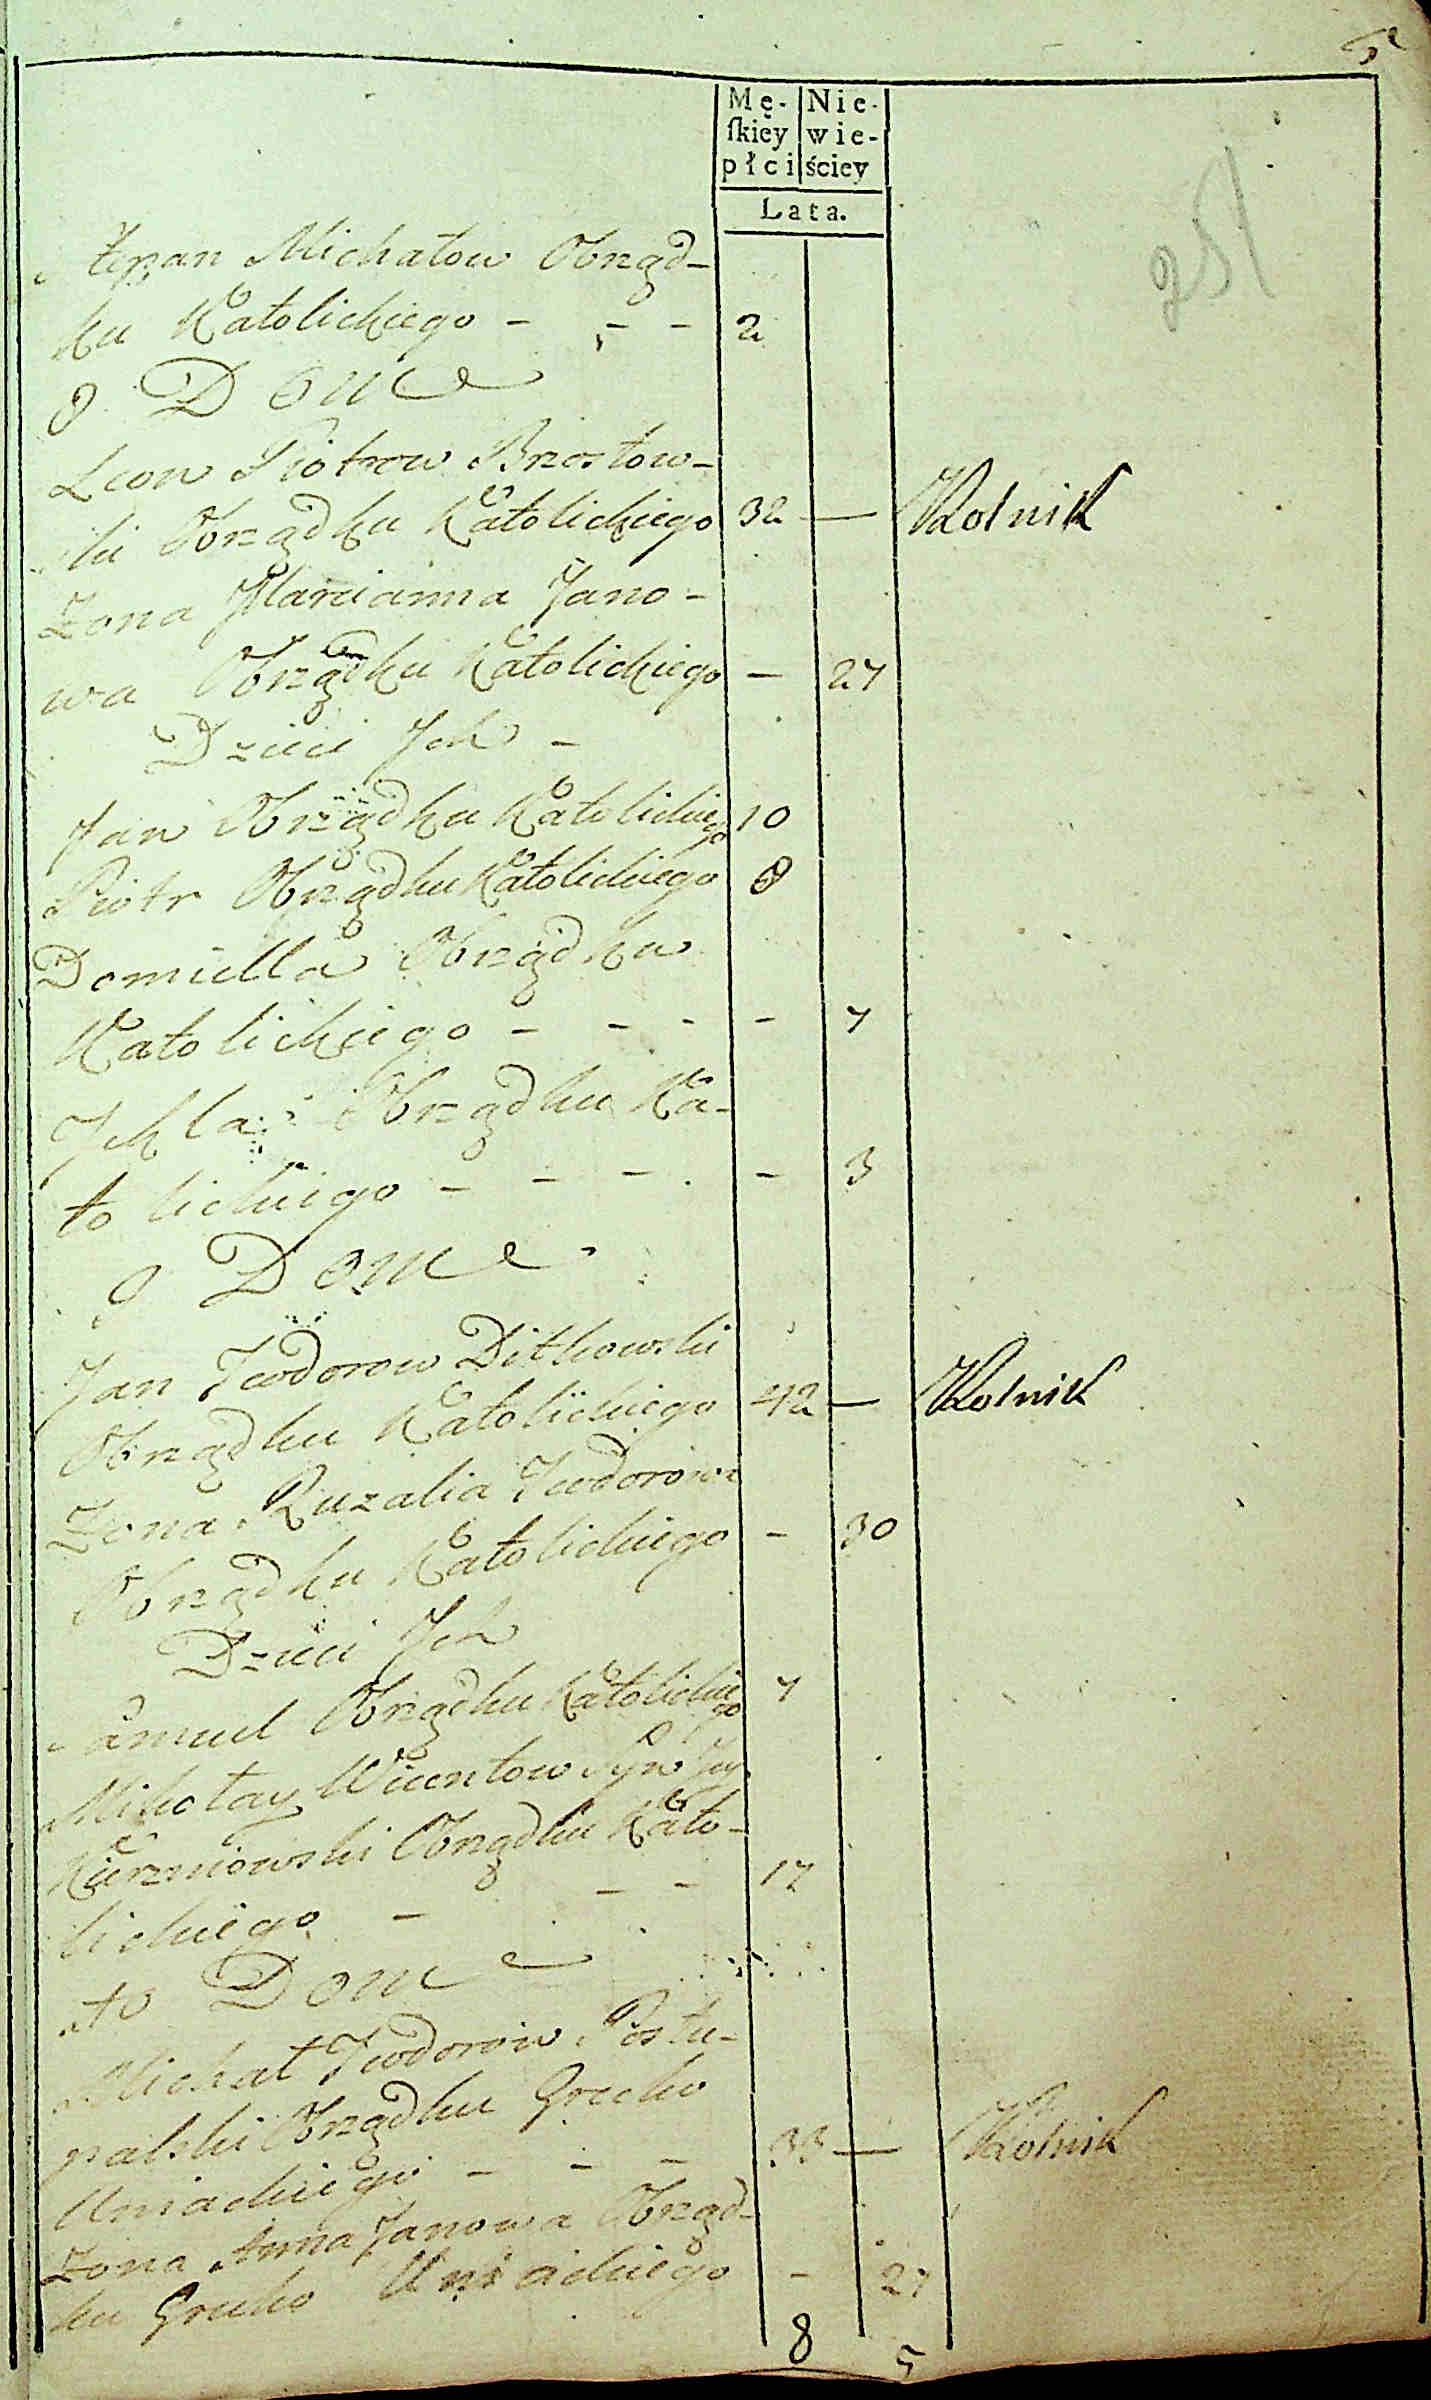 5
Mę- Nie-
ſkiey wie-
płci ściey
Lata.
Stepan Michałow Obrząd-
ku Katolickiego - - - 2
8 Dom
Leon Piotrow Brzostow-
ski Obrządku Katolickiego 32 — Rolnik
Zona Marcianna Jano-
wa Obrządku Katolickiego — 27
Dzieci Ich -
Jan Obrządku Katolickiego 10
Piotr Obrządku Katolickiego 8
Domicella Obrządku
Katolickiego - - - - 7
Obrządku Ka-
tolickiego - - - - 3
9 Dom
Jan Teodorow Ditkowski
Obrządku Katolickiego 42 — Rolnik
Zona Ruzalia Teodorowa
Obrządku Katolickiego - 30
Dzieci Ich
Samuel Obrządku Katolickiego 7
Mikołay Wicentow Syn
Obrządku Kato-
lickiego - - - 17
10 Dom
Michał Teodorow Postu-
palski Obrządku Greko
Uniackiego - - - 33 — Rolnik
Zona Anna Janowa Obrząd-
ku Greko Uniackiego - 27
8 5